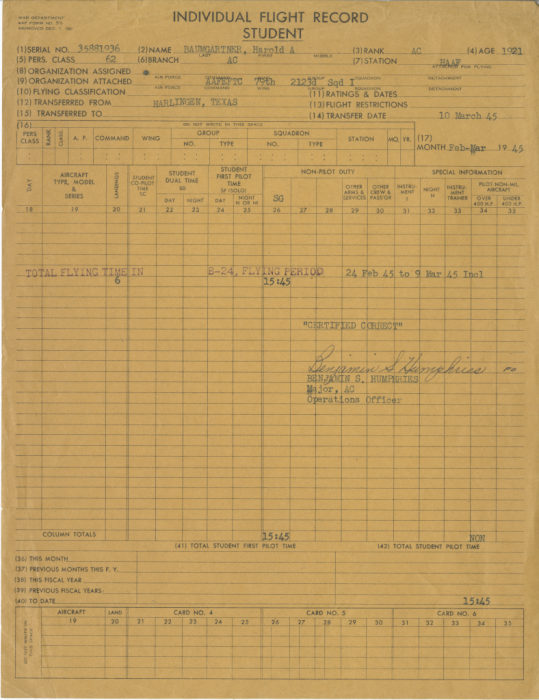 WAR DEPARTMENT
AAF FORM NO. 5
INDIVIDUAL FLIGHT RECORD
STUDENT
(1) SERIAL NO. 35881036 (2) NAME BAUMGARTNER, Harold A (3) RANK AC (4) AGE 1921
LAST FIRST MIDDLE
(5) PERS. CLASS 62 (6) BRANCH AC (7) STATION HAAF
(8) ORGANIZATION ASSIGNED
(9) ORGANIZATION ATTACHED AAFEFTC 79th 2123d Sqd I
AIR FORCE COMMAND WING SQUADRON DETACHMENT
(10) FLYING CLASSIFICATION (11) RATINGS & DATES
(12) TRANSFERRED FROM HARLINGEN, TEXAS (13) FLIGHT RESTRICTIONS
(15) TRANSFERRED TO (14) TRANSFER DATE 10 March 45
(16) DO NOT WRITE IN THIS SPACE
PERS CLASS RANK CLASS A. F. COMMAND WING GROUP NO. TYPE SQUADRON NO. TYPE STATION HQ YR. (17) MONTH Feb-Mar 19 45
DAY AIRCRAFT TYPE, MODEL & SERIES LANDINGS STUDENT CO-PILOT TIME SC STUDENT DUAL TIME SD DAY NIGHT STUDENT FIRST PILOT TIME SF (SOLO) DAY NIGHT N OR NI SG NON-PILOT DUTY OTHER ARMS & SERVICES OTHER CREW & PASS'GR INSTRUMENT I SPECIAL INFORMATION NIGHT N INSTRUMENT TRAINER PILOT NON-MIL AIRCRAFT OVER 400 H.P. UNDER 400 H.P.
18 19 20 21 22 23 24 25 26 27 28 29 30 31 32 33 34 35
TOTAL FLYING TIME IN B-24, FLYING PERIOD 24 Feb 45 to 9 Mar 45 Incl
6 15:45
"CERTIFIED CORRECT"
Benjamin S. Humphries
BENJAMIN S. HUMPHRIES
Major, AC
Operations Officer
COLUMN TOTALS 15:45 NON
(41) TOTAL STUDENT FIRST PILOT TIME (42) TOTAL STUDENT PILOT TIME
(36) THIS MONTH
(37) PREVIOUS MONTHS THIS F. Y.
(38) THIS FISCAL YEAR
(39) PREVIOUS FISCAL YEARS
(40) TO DATE 15:45
AIRCRAFT LAND. CARD NO. 4 CARD NO. 5 CARD NO. 6
19 20 21 22 23 24 25 26 27 28 29 30 31 32 33 34 35